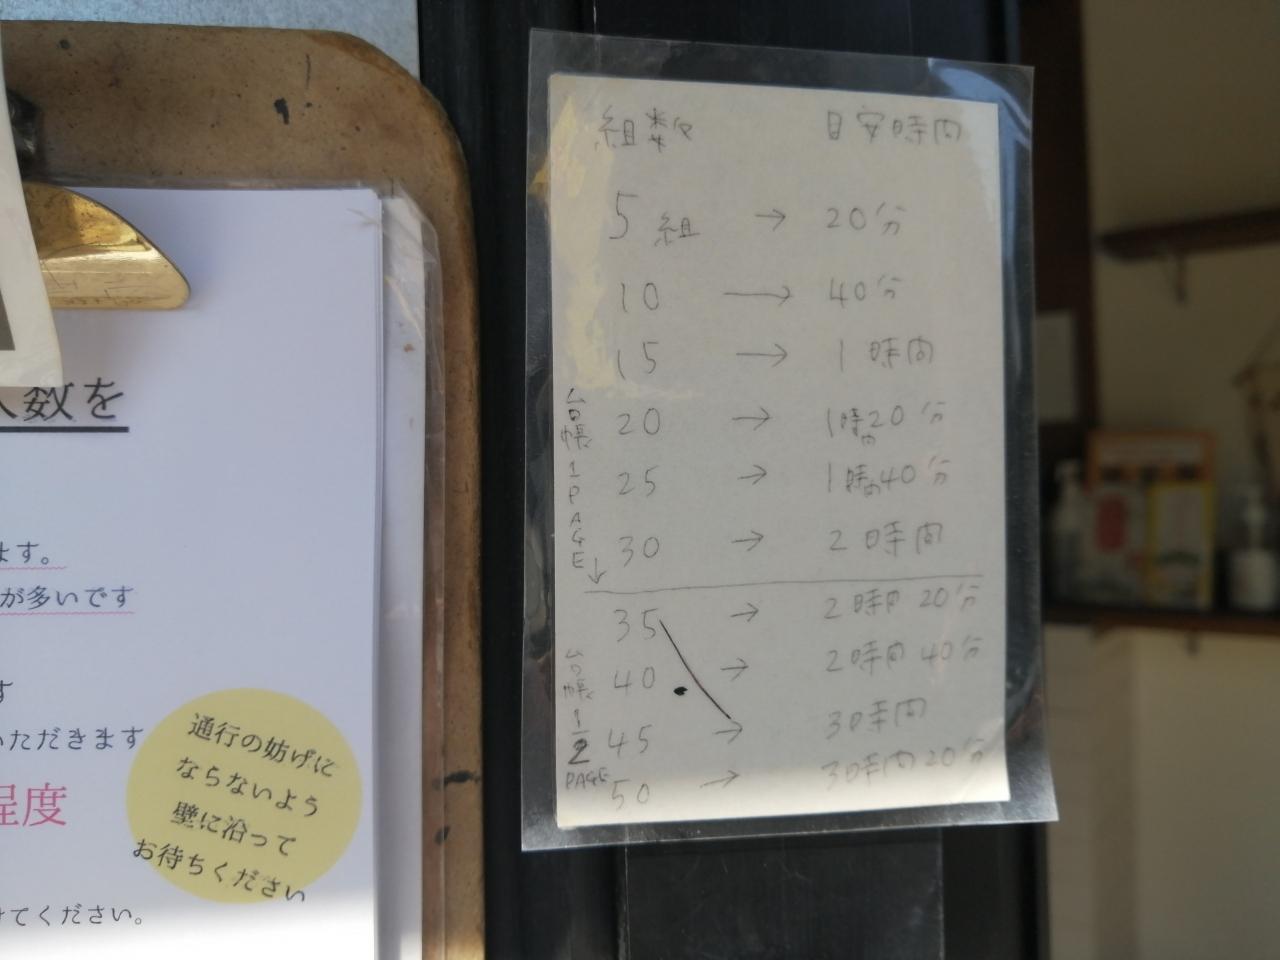 人数を
ます。
が多いです
す
いただきます
程度
けてください。
通行の妨げに
ならないよう
壁に沿って
お待ちください
組数 目安時間
5組 → 20分
10 → 40分
15 → 1時間
20 → 1時間20分
25 → 1時間40分
30 → 2時間
台帳1PAGE↓
35 → 2時間20分
40 → 2時間40分
45 → 3時間
50 → 3時間20分
台帳1/2PAGE